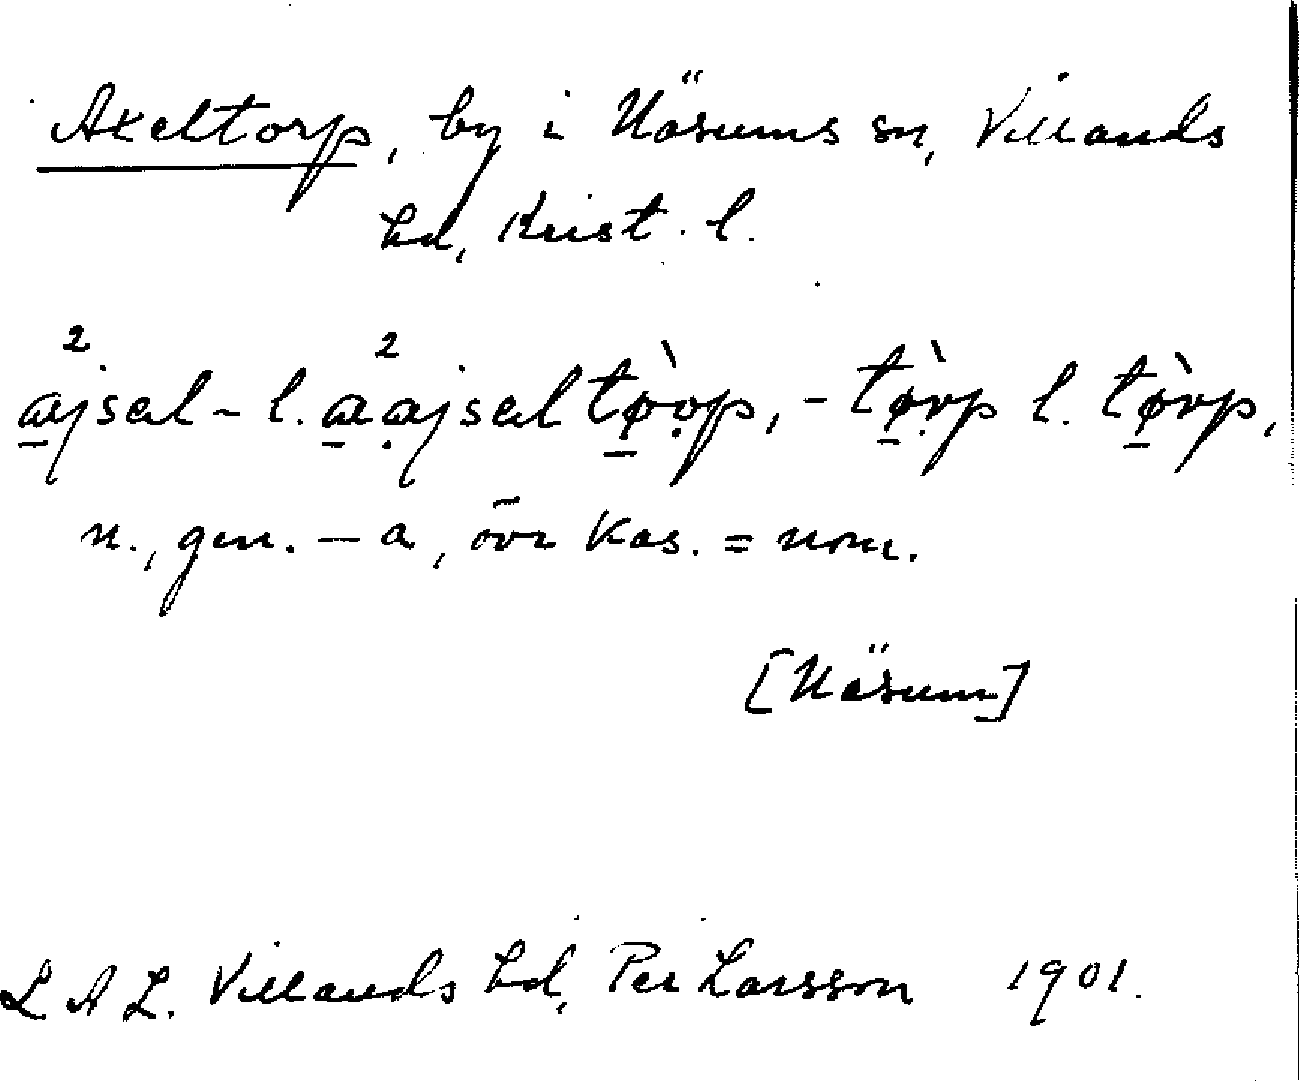 Axeltorp, by i Näsums sn, Villands
hd, Krist. l.
²a̲jsal- l. a̲ạ²jsaltø̲̀ọp, -tø̲̀ṛp l. tø̲̀rp,
n., gen. -a, övr kas. = nom.
[Näsum]
L A L. Villands hd, Per Larsson 1901.